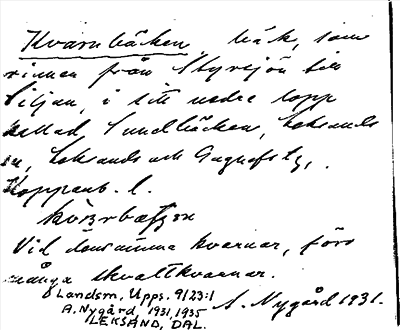 Kvarnbäcken, bäk, som
rinner från Styrsjön till
Siljan, i sitt nedre lopp
kallad Sundbäcken, Leksands
sn, Leksands och Gagnefs tg,
Kopparb. l.
Vid densamma kvarnar, förr
många skvaltkvarnar.
Landsm. Upps. 9123:1 A. Nygård 1931.
A. Nygård, 1931, 1935
LEKSAND, DAL.